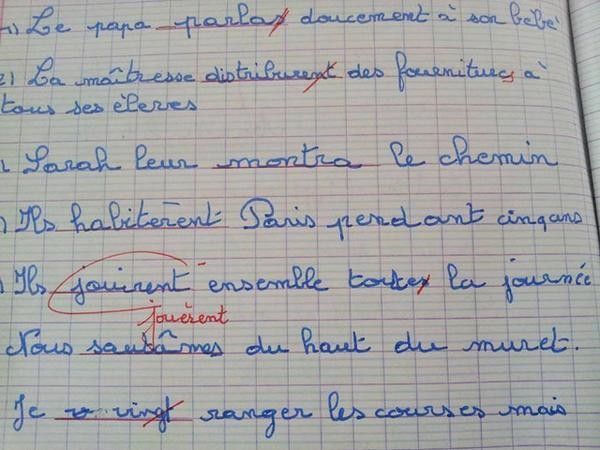 1) Le papa parlas doucement à son bébé
2) La maîtresse distriburent des fournitures à
tous ses élèves
Sarah leur montra le chemin
) Ils habitèrent Paris pendant cinq ans
) Ils jouirent ensemble toutes la journée
jouèrent
Nous sautâmes du haut du muret.
Je v vingt ranger les courses mais